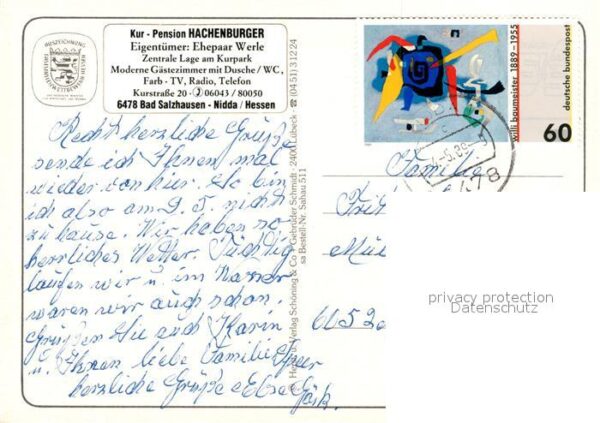 AUSZEICHNUNG
Kur - Pension HACHENBURGER
Eigentümer: Ehepaar Werle
Zentrale Lage am Kurpark
Moderne Gästezimmer mit Dusche / WC,
Farb - TV, Radio, Telefon
Kurstraße 20 - 06043 / 80050
6478 Bad Salzhausen - Nidda / Hessen
Recht herzliche Grüße
sende ich Ihnen mal
wieder von hier. So bin
ich also am 9. 5. nicht
zu hause. Wir haben so
herrliches Wetter. Tüchtig
laufen wir u. im Wasser
waren wir auch schon.
Grüßen Sie auch Karin
u. Ihnen liebe Familie
herzliche Grüße Else
Verlag Schöning & Co + Gebrüder Schmidt · 2400 Lübeck · ☎ (04 51) 3 12 24
sa Bestell-Nr. Sahau 511
willi baumeister 1889-1955
deutsche bundespost
60
6478
Familie
privacy protection
Datenschutz